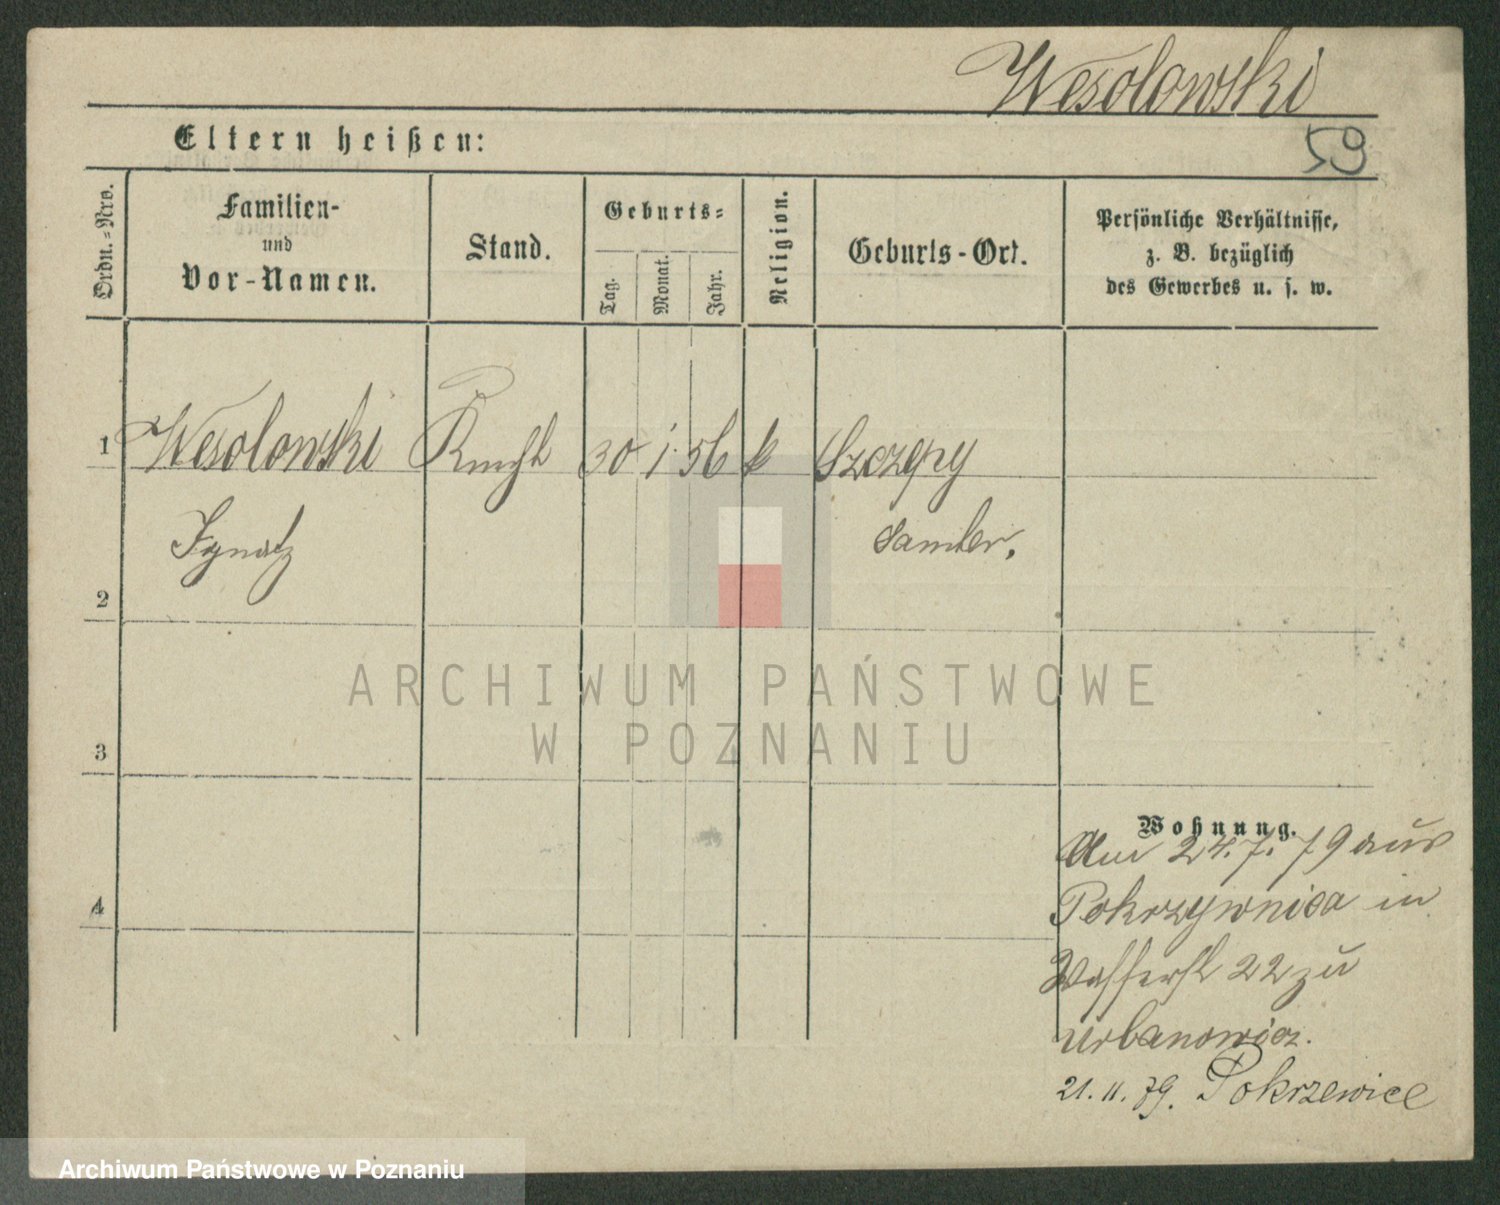 Wesolowski
59
Eltern heißen:
Ordn.-Nro.
Familien-
und
Vor-Namen.
Stand.
Geburts-
Tag.
Monat.
Jahr.
Religion.
Geburts-Ort.
Persönliche Verhältnisse,
z. B. bezüglich
des Gewerbes u. s. w.
1 Wesolowski 30 1 56 k Szczepy
Ignatz Samter.
2
3
4
Wohnung.
Am 24.7.79 aus
Pokrzywnica in
Wasserst 22 zu
Urbanowicz.
21. 11. 79. Pokrzewice
ARCHIWUM PAŃSTWOWE
W POZNANIU
Archiwum Państwowe w Poznaniu